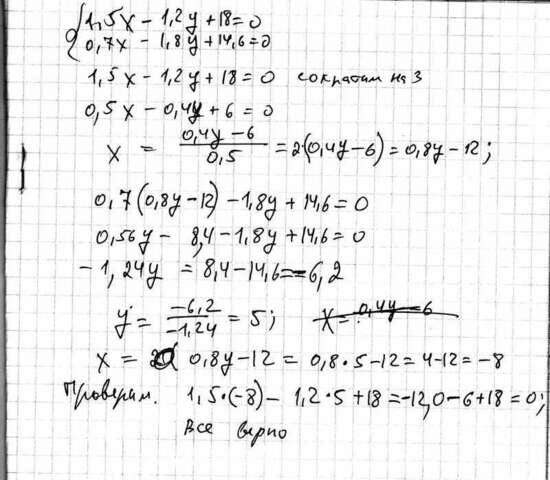 1,5x - 1,2y + 18 = 0
0,7x - 1,8y + 14,6 = 0
1,5x - 1,2y + 18 = 0 сократим на 3
0,5x - 0,4y + 6 = 0
x = (0,4y - 6)/0,5 = 2(0,4y - 6) = 0,8y - 12;
0,7(0,8y - 12) - 1,8y + 14,6 = 0
0,56y - 8,4 - 1,8y + 14,6 = 0
-1,24y = 8,4 - 14,6 = -6,2
y = -6,2/-1,24 = 5; x = 0,4y - 6
x = 0,8y - 12 = 0,8·5 - 12 = 4 - 12 = -8
Проверим. 1,5·(-8) - 1,2·5 + 18 = -12,0 - 6 + 18 = 0;
Все верно